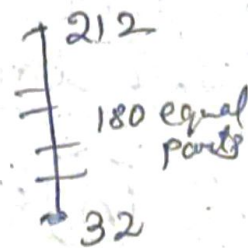 212
180 equal
parts
32